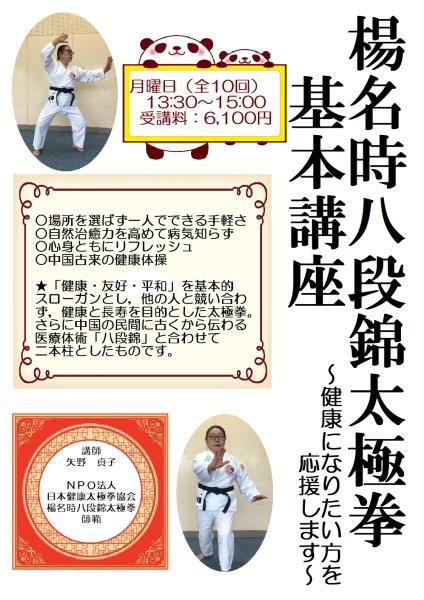 楊名時八段錦太極拳
基本講座
～健康になりたい方を
応援します～
月曜日（全10回）
13:30～15:00
受講料：6,100円
○場所を選ばず一人でできる手軽さ
○自然治癒力を高めて病気知らず
○心身ともにリフレッシュ
○中国古来の健康体操
★「健康・友好・平和」を基本的
スローガンとし，他の人と競い合わ
ず，健康と長寿を目的とした太極拳。
さらに中国の民間に古くから伝わる
医療体術「八段錦」と合わせて
二本柱としたものです。
講師
矢野　貞子
ＮＰＯ法人
日本健康太極拳協会
楊名時八段錦太極拳
師範